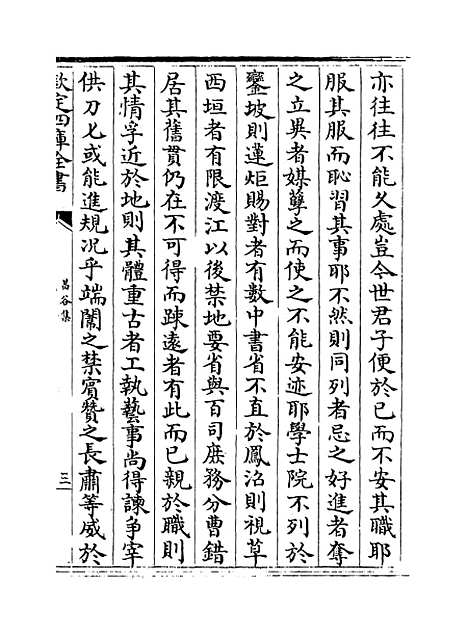 亦往往不能久處豈今世君子便於已而不安其職耶
服其服而恥習其事耶不然則同列者忌之好進者奪
之立異者媒孽之而使之不能安迹耶學士院不列於
鑾坡則蓮炬賜對者有數中書省不直於鳳沼則視草
西垣者有限渡江以後禁地要省與百司庶務分曹錯
居其舊貫仍在不可得而踈遠者有此而已親於職則
其情孚近於地則其體重古者工執藝事尚得諫争宰
供刀匕或能進規况乎端闈之禁賓贊之長肅等威於
欽定四庫全書
昌谷集
三